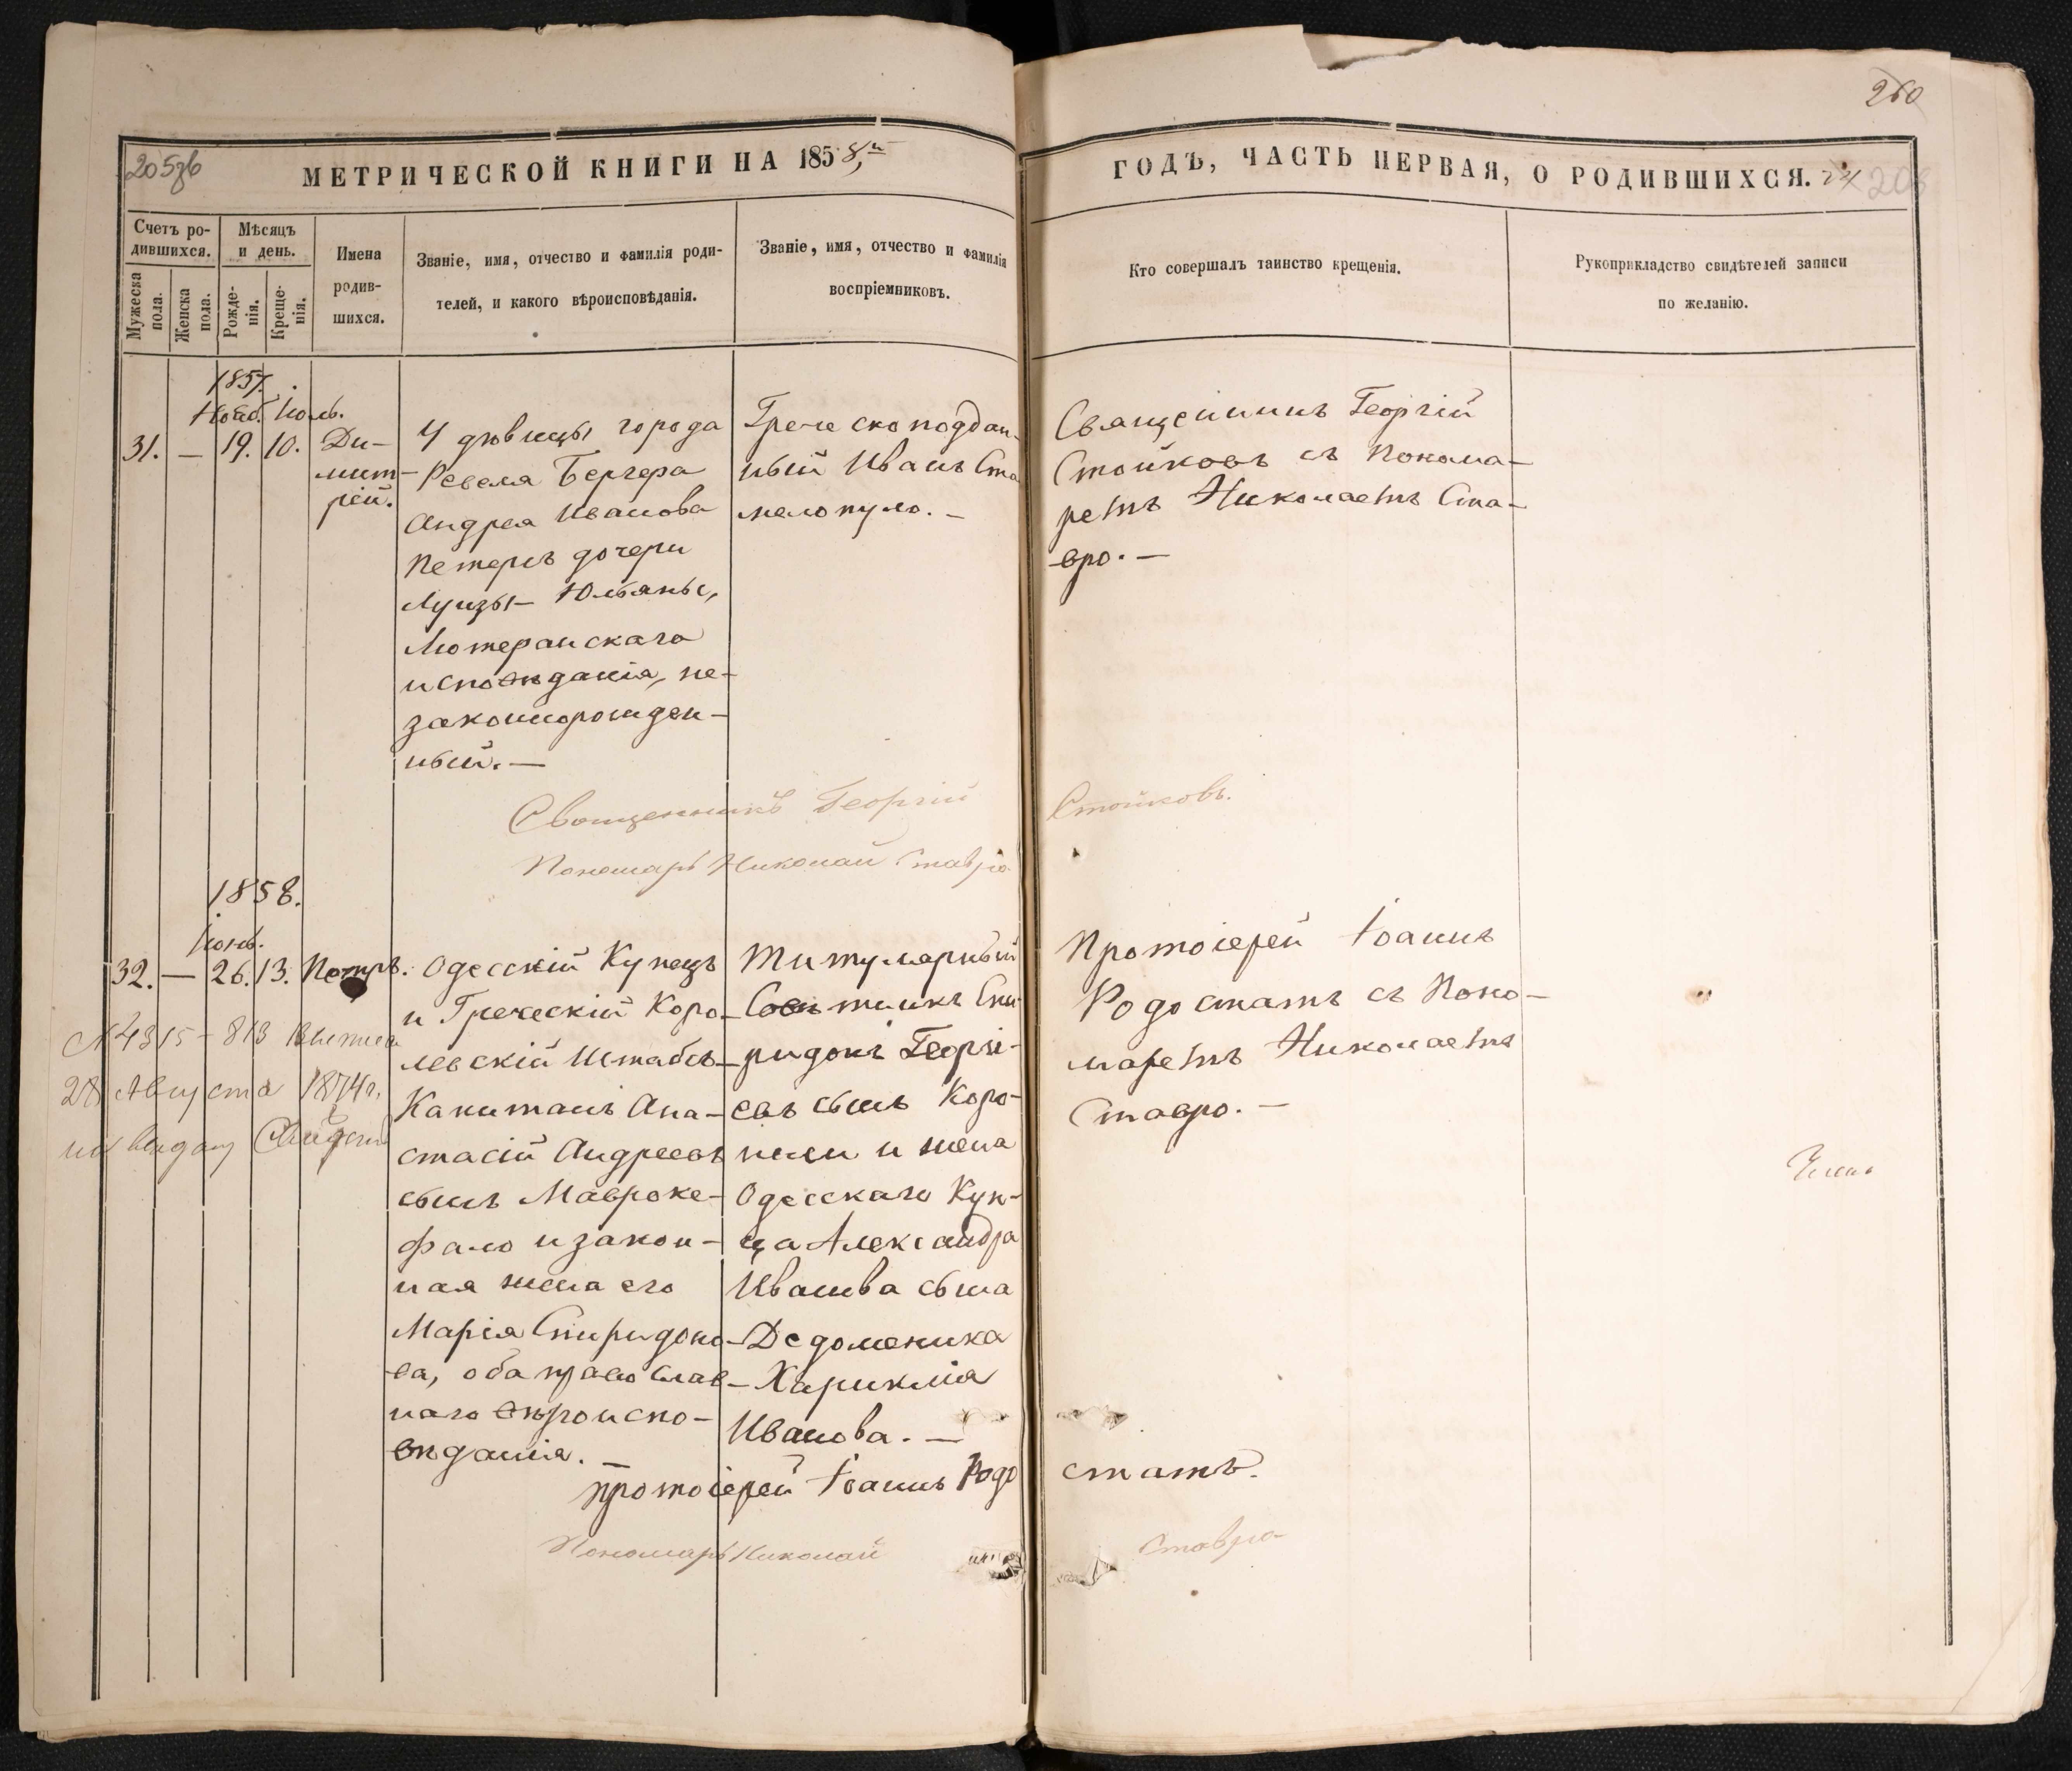 260
205об
МЕТРИЧЕСКОЙ КНИГИ НА 1858,й
ГОДЪ, ЧАСТЬ ПЕРВАЯ, О РОДИВШИХСЯ.
208
Счетъ ро-
дившихся.
Мужеска
пола.
Женска
пола.
Мѣсяцъ
и день.
Рожде-
нія.
Креще-
нія.
Имена
родив-
шихся.
Званіе, имя, отчество и фамилія роди-
телей, и какого вѣроисповѣданія.
Званіе, имя, отчество и фамилія
воспріемниковъ.
Кто совершалъ таинство крещенія.
Рукоприкладство свидѣтелей записи
по желанію.
1857.
Нояб. Іюль.
31. — 19. 10.
Ди-
мит-
рій.
У дѣвицы города
Ревеля Бергера
Андрея Иванова
Петерсъ дочери
Луизы-Юльяны,
Лютеранскаго
исповѣданія, не-
законнорожден-
ный. —
Греческоподдан-
ный Иванъ Ста
мелопуло. —
Священникъ Георгій
Стойковъ съ Понома-
ремъ Николаемъ Ста-
вро. —
Священникъ Георгій Стойковъ.
Пономарь Николай Ставро
1858.
Іюнь.
32. — 26. 13. Петръ.
Одесскій Купецъ
и Греческій Коро-
левскій Штабсъ-
Капитанъ Ана-
стасій Андреевъ
сынъ Мавроке-
фало и закон-
ная жена его
Марія Спиридоно-
ва, оба православ-
наго вѣроиспо-
вѣданія. —
Титулярный
Совѣтникъ Спи-
ридонъ Георгі-
евъ сынъ Коро-
нели и жена
Одесскаго Куп-
ца Александра
Иванва сына
Дедоменика
Хариклія
Иванова. —
Протоіерей Іоаннъ
Родостатъ съ Поно-
маремъ Николаемъ
Ставро. —
28 Августа 1874г.
на выдачу
протоіерей Іоаннъ Родостатъ.
Пономарь Николай Ставро